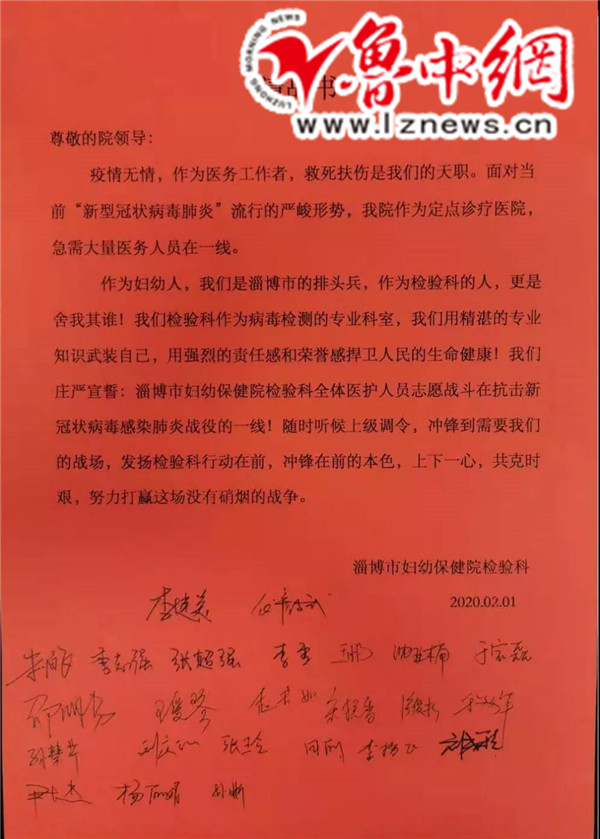 LUZHONG MORNING NEWS
鲁中網
www.lznews.cn
书
尊敬的院领导：
疫情无情，作为医务工作者，救死扶伤是我们的天职。面对当
前“新型冠状病毒肺炎”流行的严峻形势，我院作为定点诊疗医院，
急需大量医务人员在一线。
作为妇幼人，我们是淄博市的排头兵，作为检验科的人，更是
舍我其谁！我们检验科作为病毒检测的专业科室，我们用精湛的专业
知识武装自己，用强烈的责任感和荣誉感捍卫人民的生命健康！我们
庄严宣誓：淄博市妇幼保健院检验科全体医护人员志愿战斗在抗击新
冠状病毒感染肺炎战役的一线！随时听候上级调令，冲锋到需要我们
的战场，发扬检验科行动在前，冲锋在前的本色，上下一心，共克时
艰，努力打赢这场没有硝烟的战争。
淄博市妇幼保健院检验科
2020.02.01
李志强 张超强 李秀 于宏磊
孙慧华 张玲 田刚
杨丽娟